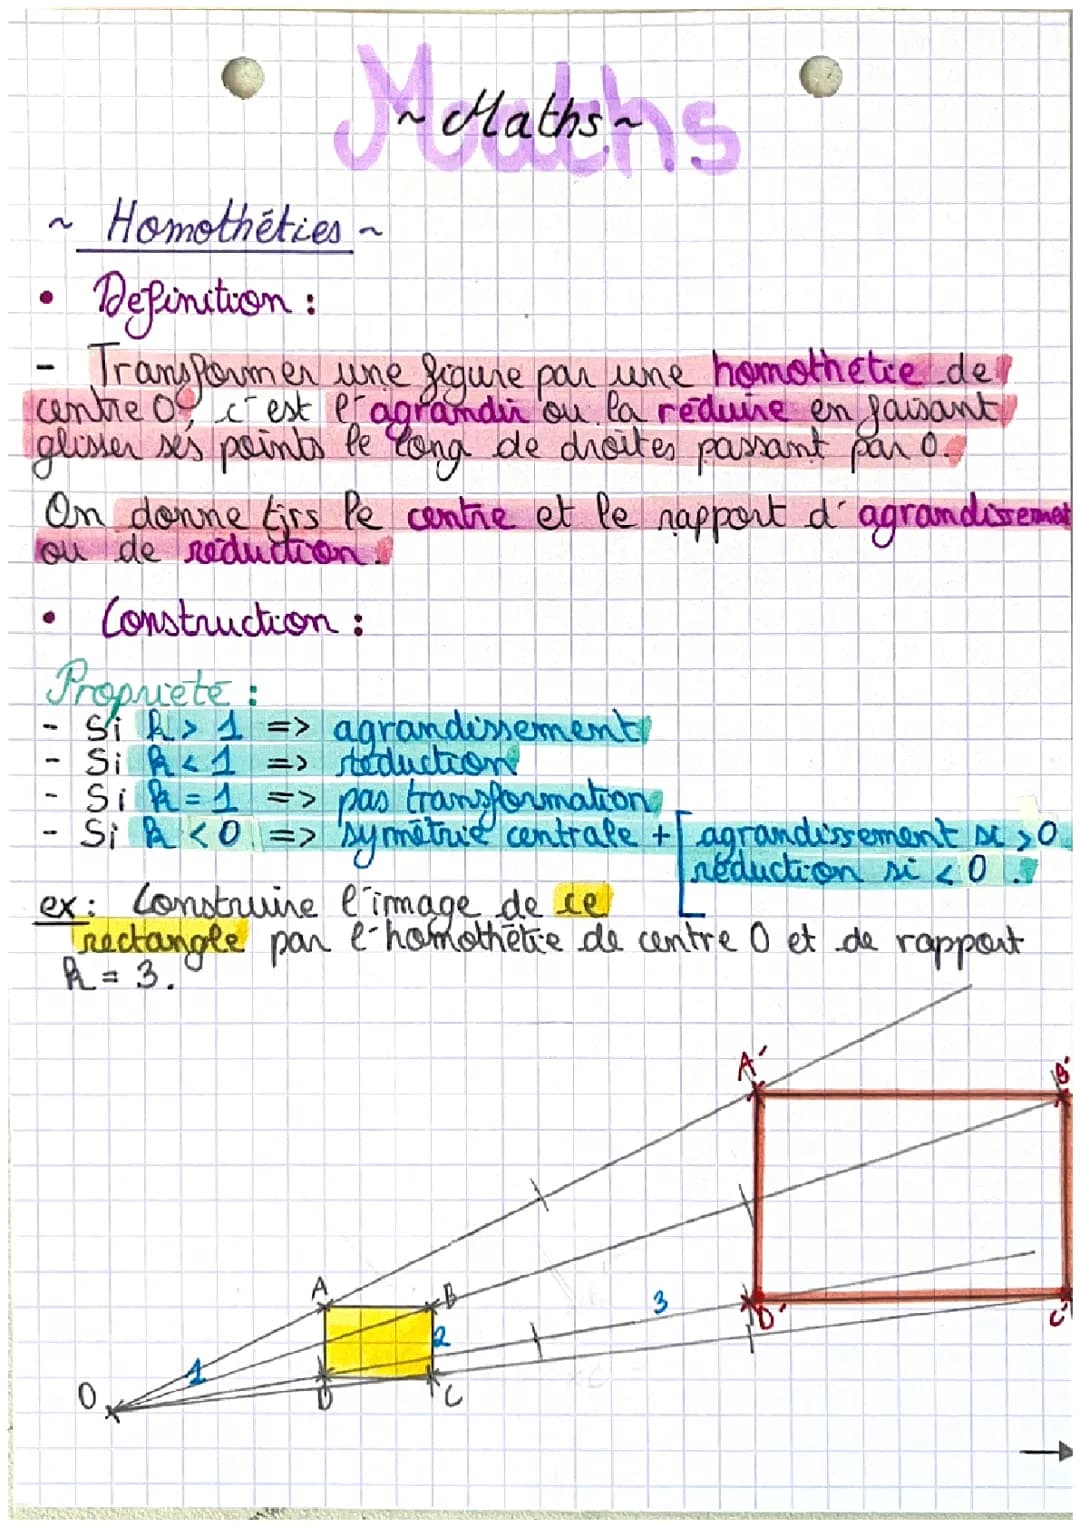 Maths
~ Maths ~
~ Homothéties ~
• Definition :
- Transformer une figure par une homothétie de
centre O, c'est l'agrandir ou la réduire en faisant
glisser ses points le long de droites passant par O.
On donne tjrs le centre et le rapport d'agrandissement
ou de réduction.
• Construction :
Propriété :
- Si k > 1 => agrandissement
- Si k < 1 => réduction
- Si k = 1 => pas transformation
- Si k < 0 => symétrie centrale + [ agrandissement si > 0
réduction si < 0 .
ex : Construire l'image de ce
rectangle par l'homothétie de centre O et de rapport
k = 3.
A' B'
A B 3
2 D' C'
1
O D C
→